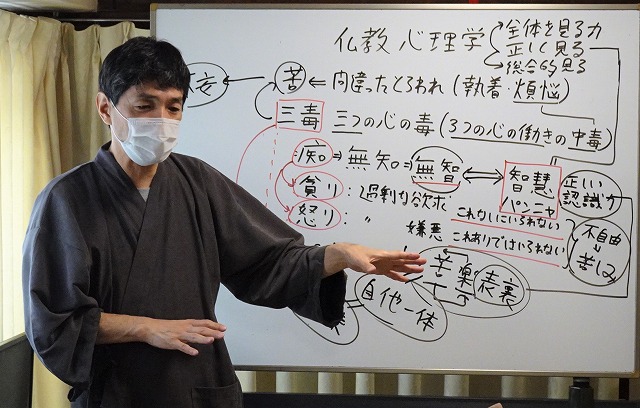 仏教心理学
全体を見る力
正しく見る
総合的見る
苦 ⇐ 間違ったとらわれ(執着・煩悩)
三毒 三つの心の毒(3つの心の働きの中毒)
痴 ⇒ 無知 ⇒ 無智 ⇔ 智慧
パンニャ
正しい
認識力
貪り : 過剰な欲求 これなしにいられない
怒り : 〃 嫌悪 これありではいられない
不自由
↓
苦しみ
苦楽表裏
自他一体